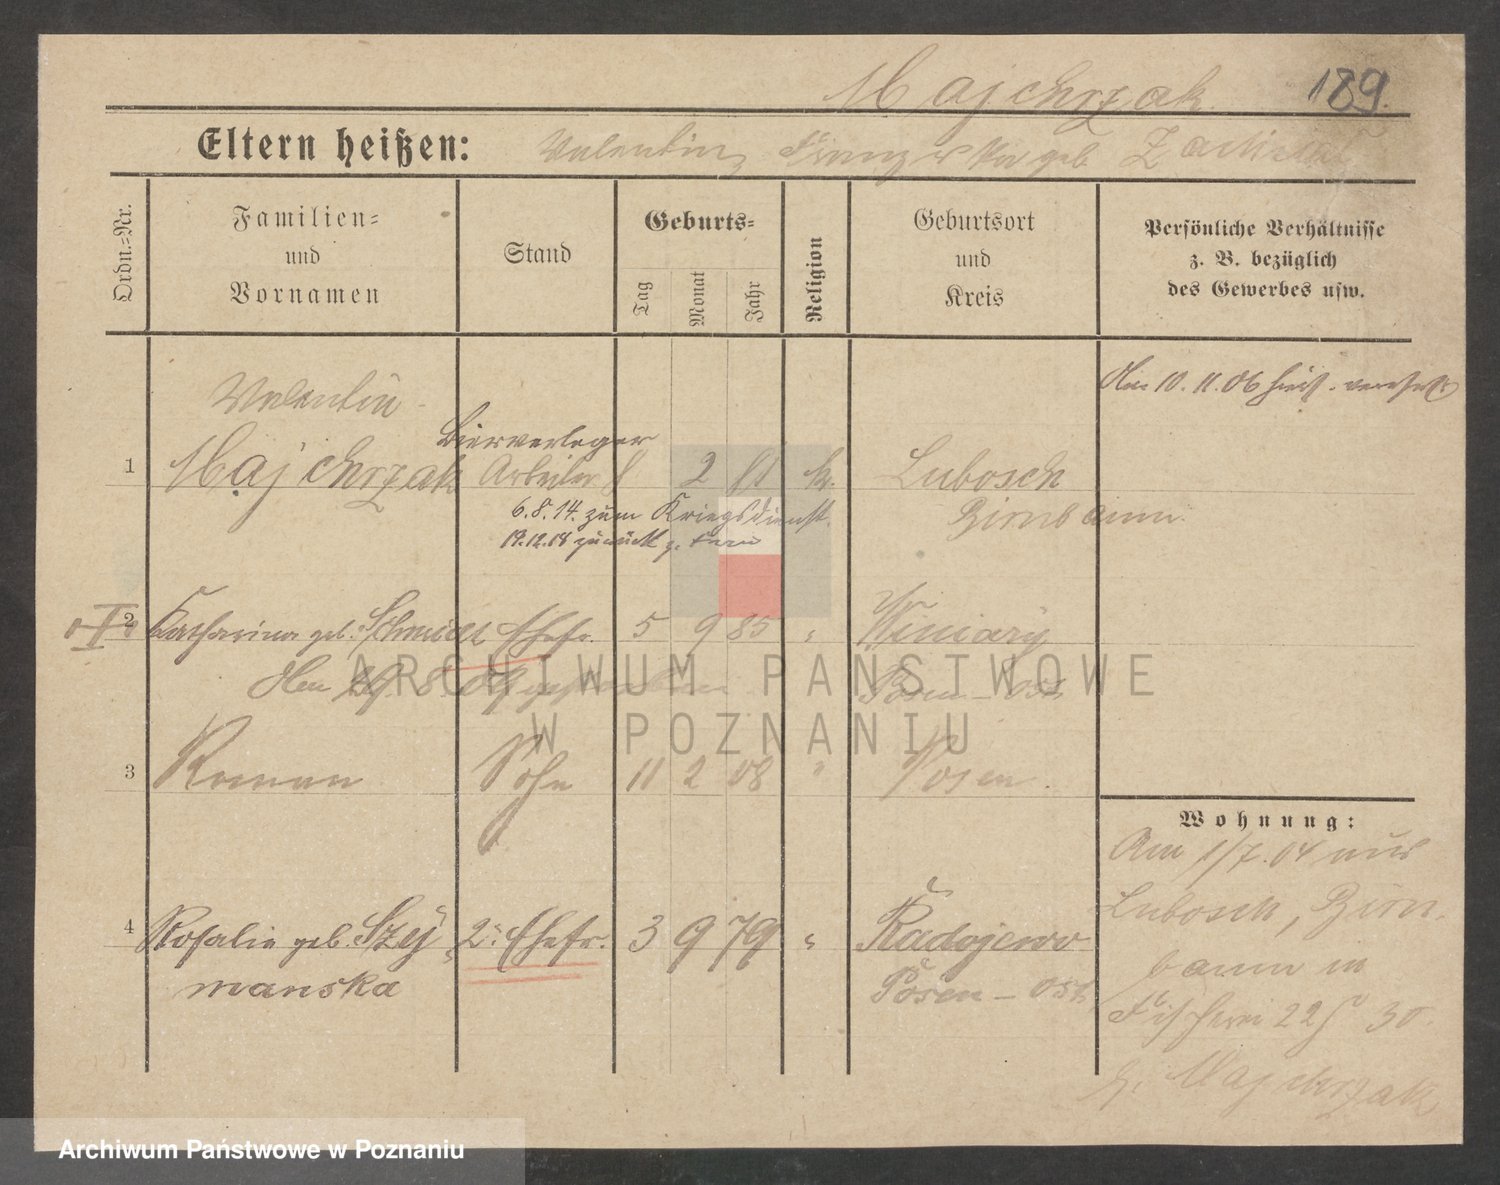 Majchrzak 189.
Eltern heißen: Valentin, Franziska geb.
Ordn.-Nr.
Familien-
und
Vornamen
Stand
Geburts-
Tag
Monat
Jahr
Religion
Geburtsort
und
Kreis
Persönliche Verhältnisse
z. B. bezüglich
des Gewerbes usw.
Am 10. 11. 06
Valentin
Bierverleger
1 Majchrzak Arbeiter 2 81 k. Lubosch
6.8.14. zum Kriegsdienst. Birnbaum.
19.12.18 zurück
2 Katharina geb. Schmidt Ehefr. 5 9 85 " Winiary
Posen-Ost
ARCHIWUM PAŃSTWOWE
W POZNANIU
3 Roman Sohn 11 2 08 " Posen.
Wohnung:
Am 1/7. 04 aus
Lubosch, Birn-
4 Rosalie geb. Szy- 2. Ehefr. 3 9 79 " Radojewo
baum in
manska Posen-Ost
Fischerei 22 30.
Majchrzak
Archiwum Państwowe w Poznaniu